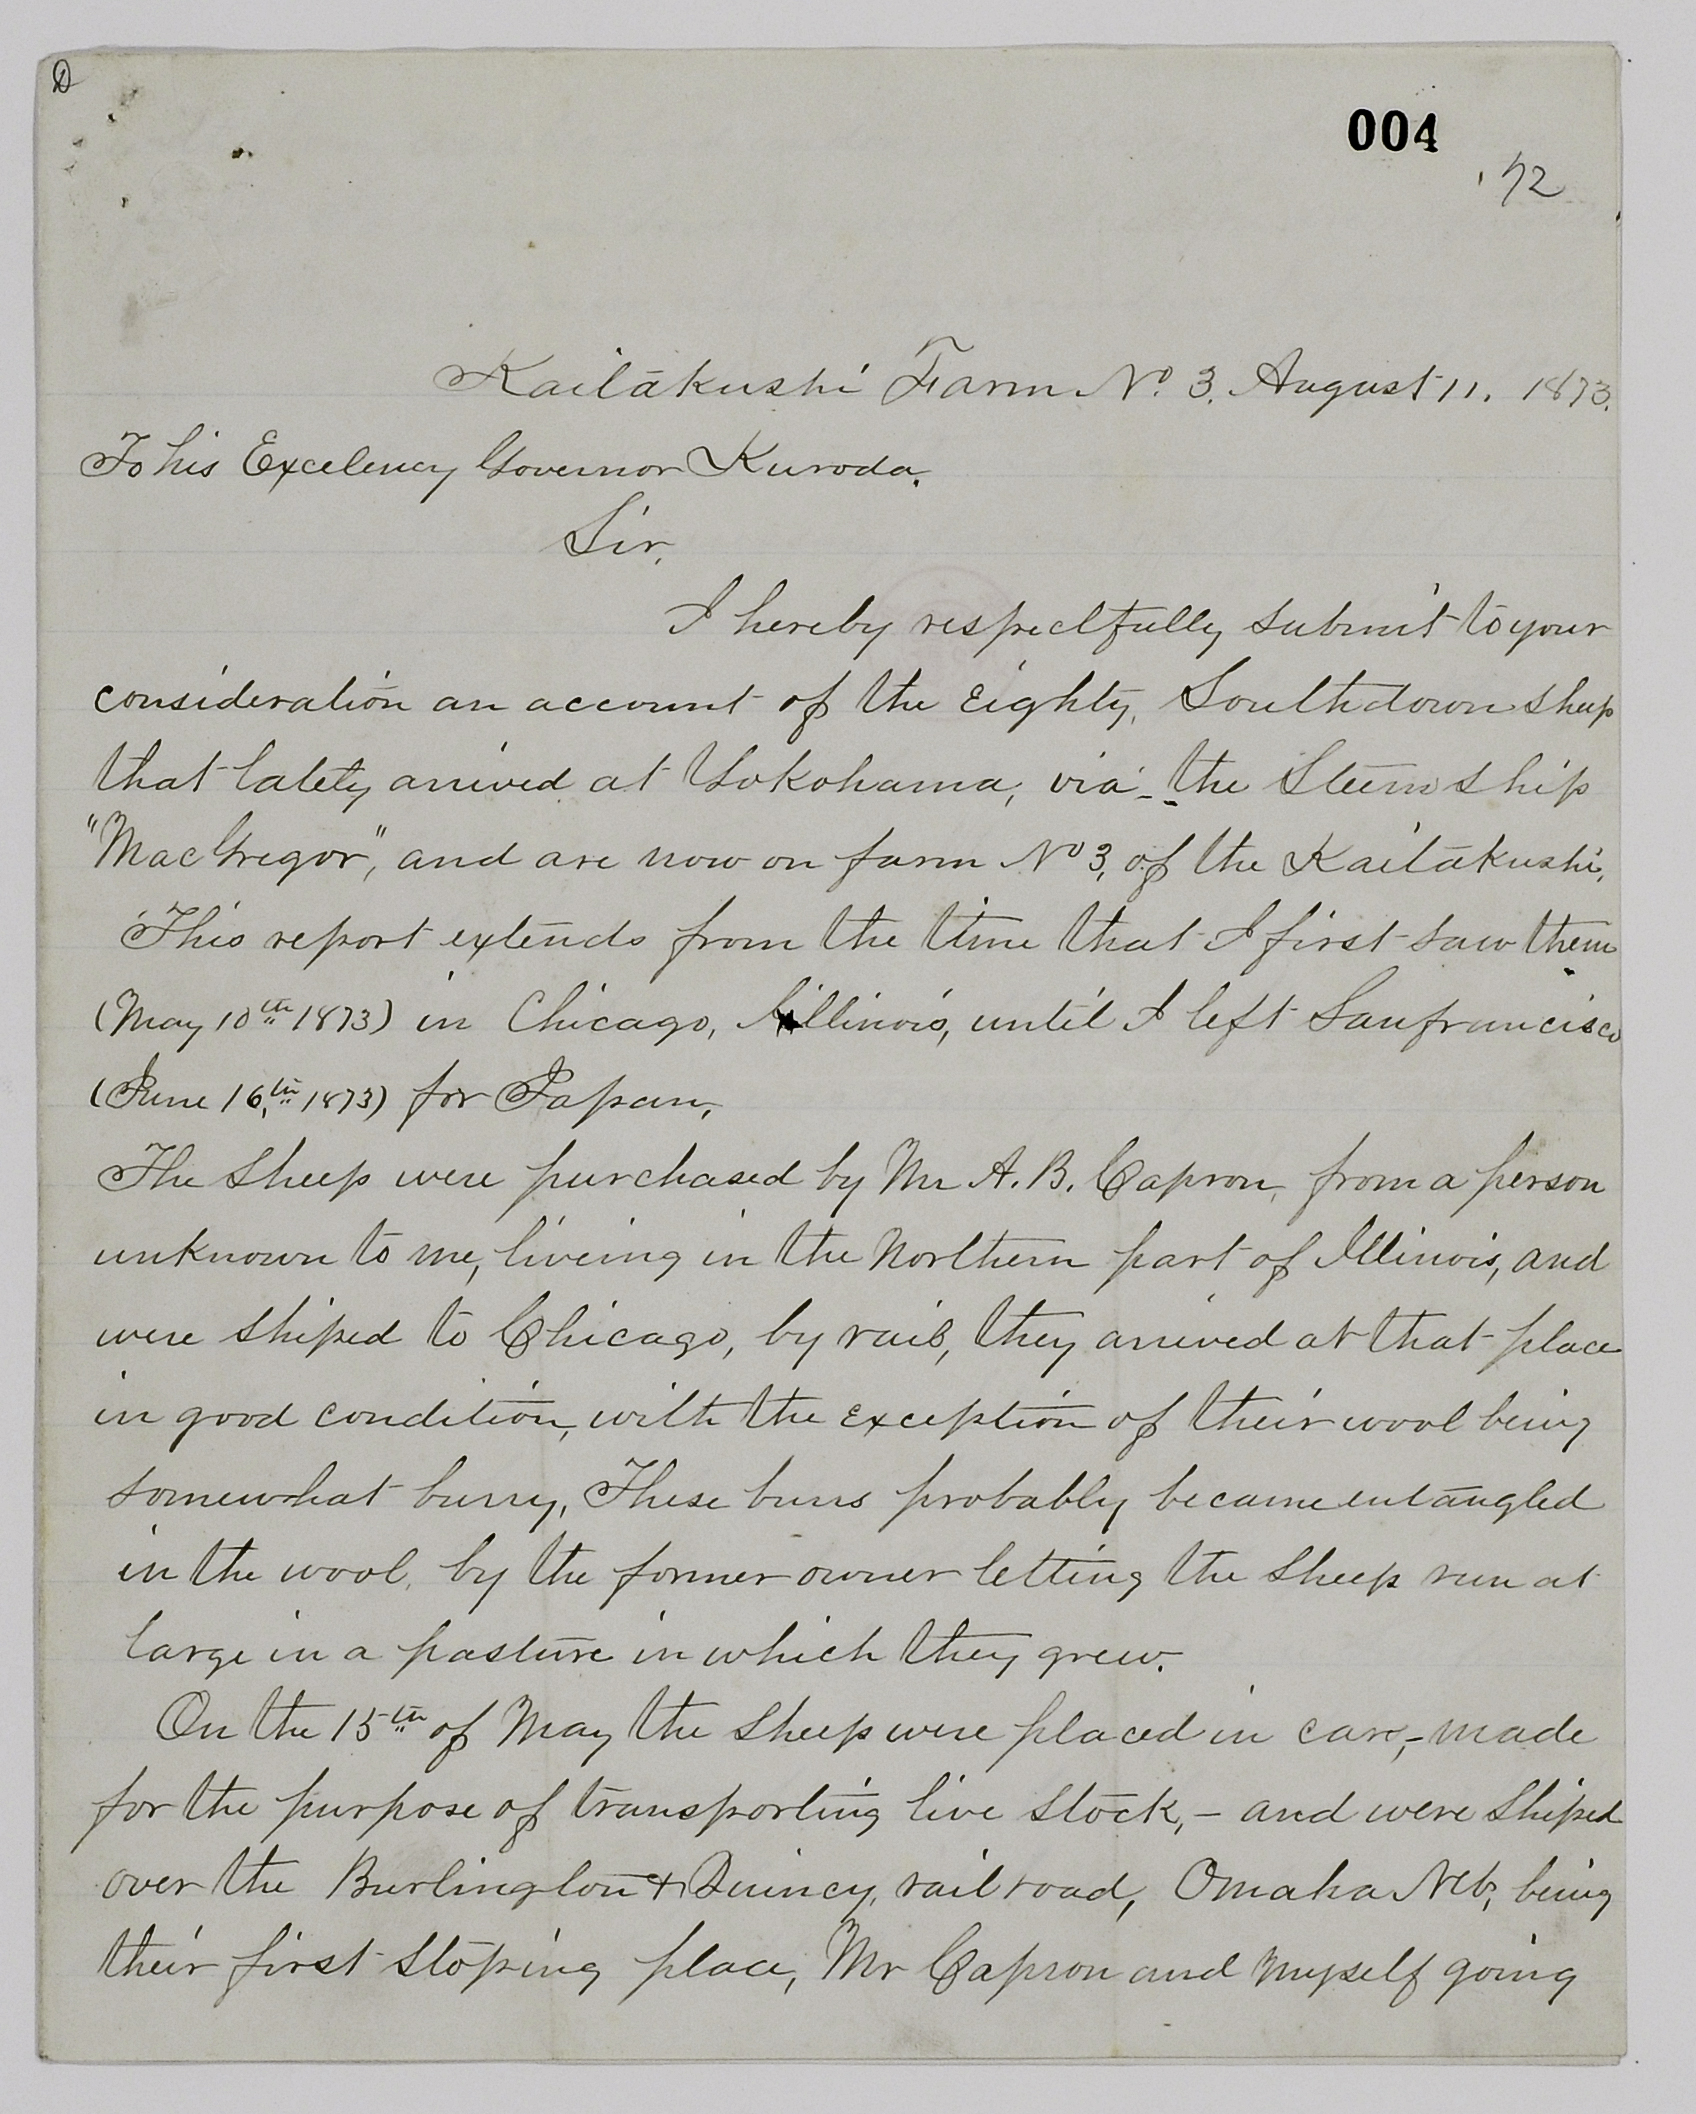 D
004
72
Kaitakushi Farm No. 3. August 11. 1873.
To his Excelency Governor Kuroda.
Sir,
I hereby respectfully submit to your
consideration an account of the Eighty, Southdown sheep
that lately arrived at Yokohama, via the Steem ship
"MacGregor", and are now on farm No 3, of the Kaitakushi.
This report extends from the time that I first saw them
(May 10th 1873) in Chicago, Illinois, until I left Sanfrancisco
(June 16th 1873) for Japan.
The Sheep were purchased by Mr A. B. Capron, from a person
unknown to me, liveing in the Northern part of Illinois, and
were shiped to Chicago, by rail, they arrived at that place
in good condition, with the exception of their wool being
somewhat burry, These burrs probably became entangled
in the wool, by the former owner letting the sheep run at
large in a pasture in which they grew.
On the 15th of May the Sheep were placed in cars,- made
for the purpose of transporting live stock,- and were shiped
over the Burlington & Quincy, rail road, Omaha Neb, being
their first stoping place, Mr Capron and myself going